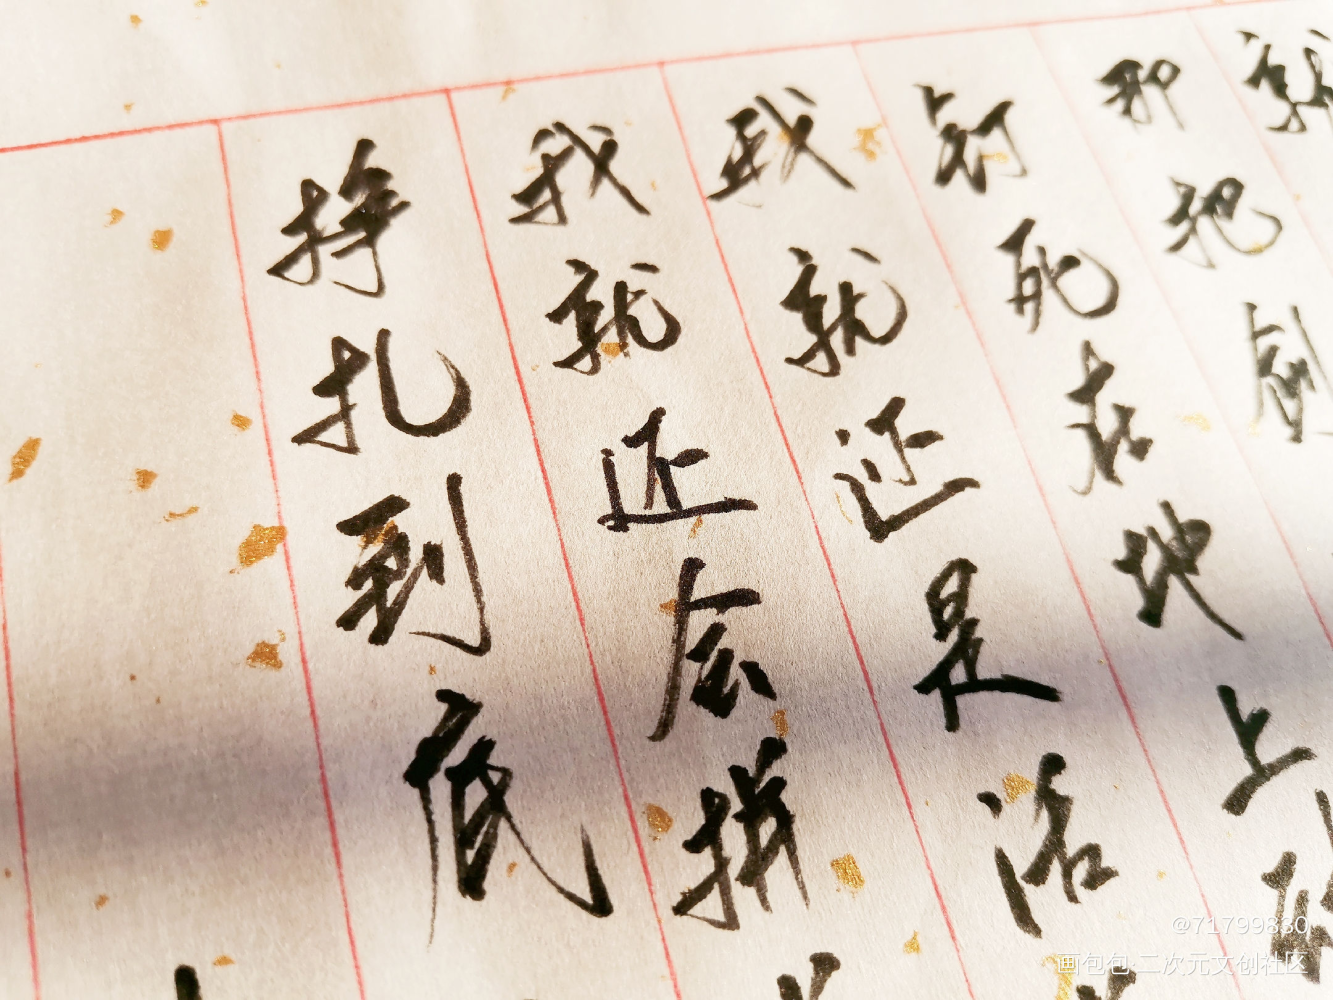 就
那把剑
钉死在地上
我就还是活
我就还会拼
挣扎到底
@71799830
画包包·二次元文创社区